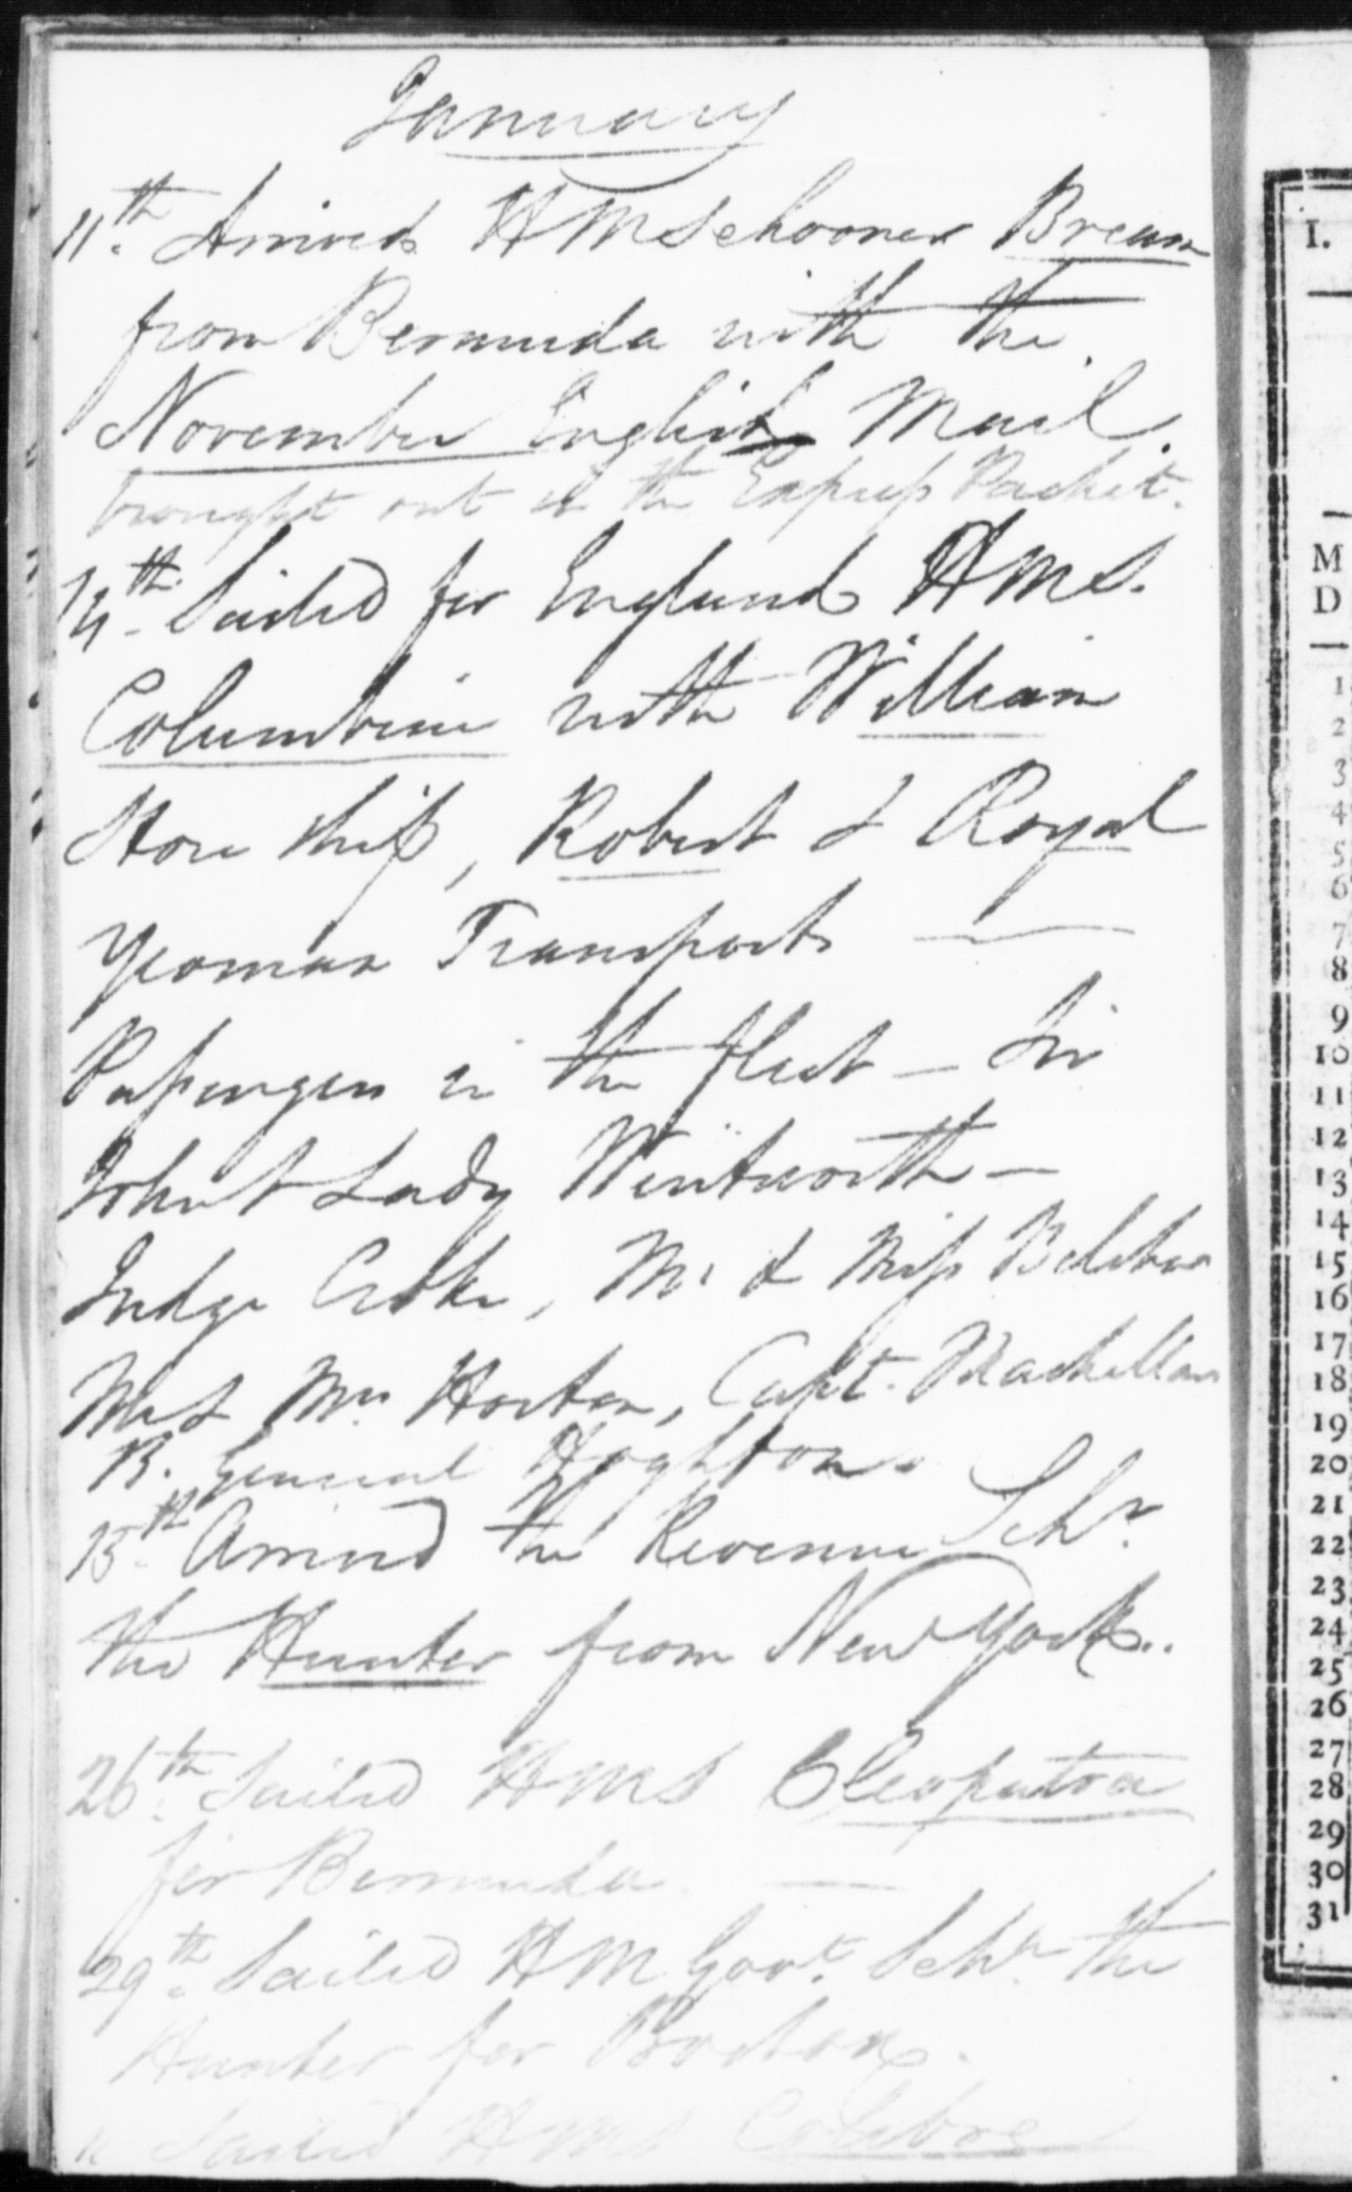 January
11th. Arrived HM Schooner Bream
from Bermuda with the
November English Mail.
brought out in the Express Packet.
14th. Sailed for England HMS.
Columbine with William
Store ship, Robert & Royal
Yeoman Transports —
Passengers in the fleet — Sir
John & Lady Wentworth —
Judge Croke, Mr & Miss Belcher
Mr & Mrs Horton, Capt. Mackellar
B. General Hoghton.
15th. Arrived the Revenue Schr.
the Hunter from New York.
26th. Sailed HMS Cleopatra
for Bermuda. —
29th. Sailed HM Govt. Schr. the
Hunter for Boston.
" Sailed HMS
I.
M
D
1
2
3
4
5
6
7
8
9
10
11
12
13
14
15
16
17
18
19
20
21
22
23
24
25
26
27
28
29
30
31